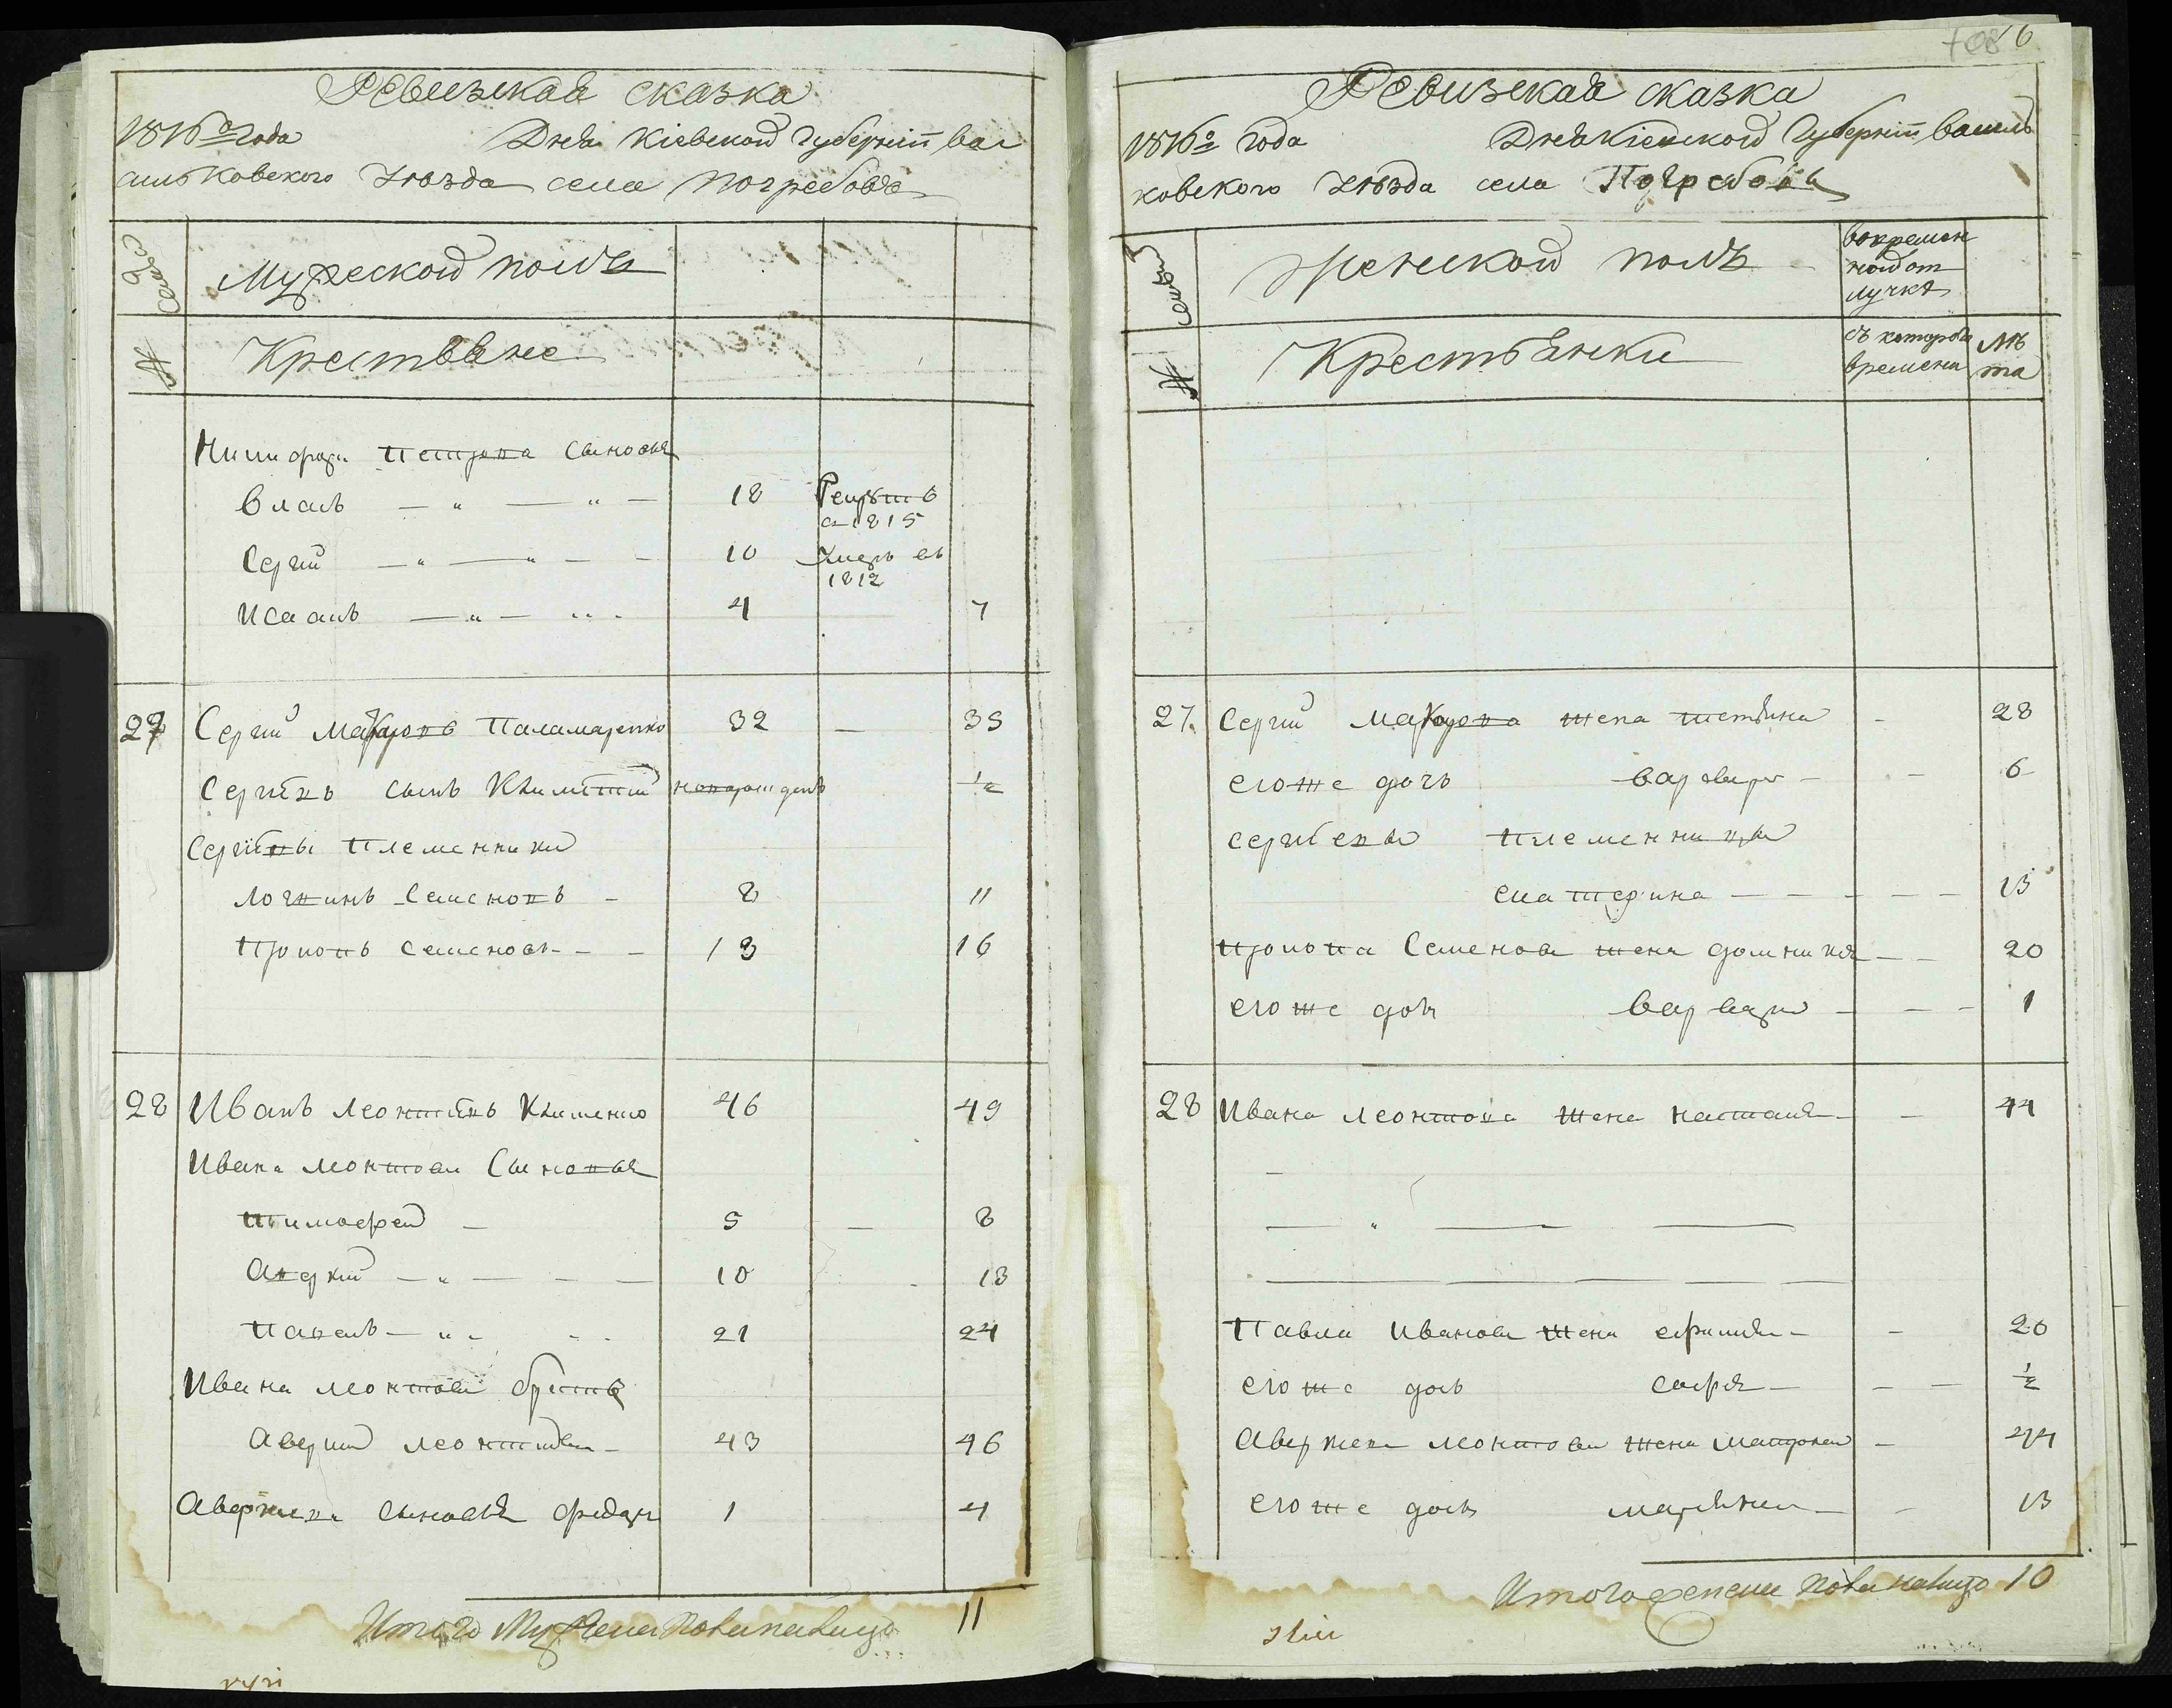 Ревизская сказка
1816го года Дня Кіевской Губерніи вас
ильковского Уѣзда села Погребовъ
семьи
Мужеской полъ
№
Крестьяне
Никифора Петрова сыновья
Власъ — „ — „ — 18 Рекрутъ
в 1815
Сергій — „ — „ — — 10 Умеръ въ
1812
Исаакъ — „ — „ 4 7
27 Сергій Макаровъ Паламаренко 32 — 35
Сергіевъ сынъ Климентій новорожденъ ½
Сергіевы племенники
Логвинъ Семеновъ - 8 11
Прокопъ Семеновъ - - 13 16
28 Иванъ Леонтіевъ Клименко 46 49
Ивана Леонтова сыновья
Тимофей — 5 — 8
Андрей — „ — — — 10 13
Павелъ — „ - - 21 24
Ивана Леонтова братъ
Аверкій Леонтіевъ - 43 46
Аверкіева сыновья Федоръ 1 4
Итого Мужеска пола налицо 11
706
Ревизская сказка
1816го года Дня Кіевской Губерніи василь
ковского Уѣзда села Погребовъ
семьи
Женской полъ
во времен
ной от
лучкѣ
№
Крестьянки
съ которого
времени
лѣ
та
27. Сергія Макарова жена Тетяна - 28
его же дочь Варвара - - 6
Сергіевы племенницы
Екатерина — — — — — 13
Прокопа Семенова жена Домникия — — 20
его же дочь Варвара — — - 1
28 Ивана Леонтова жена Настасія - — 44
Павла Иванова жена Ефимия - — 20
его же дочь Софія — — — ½
Аверкия Леонтова жена Матрона — 44
его же дочь Маріянна — — 13
Итого женска пола налицо 10